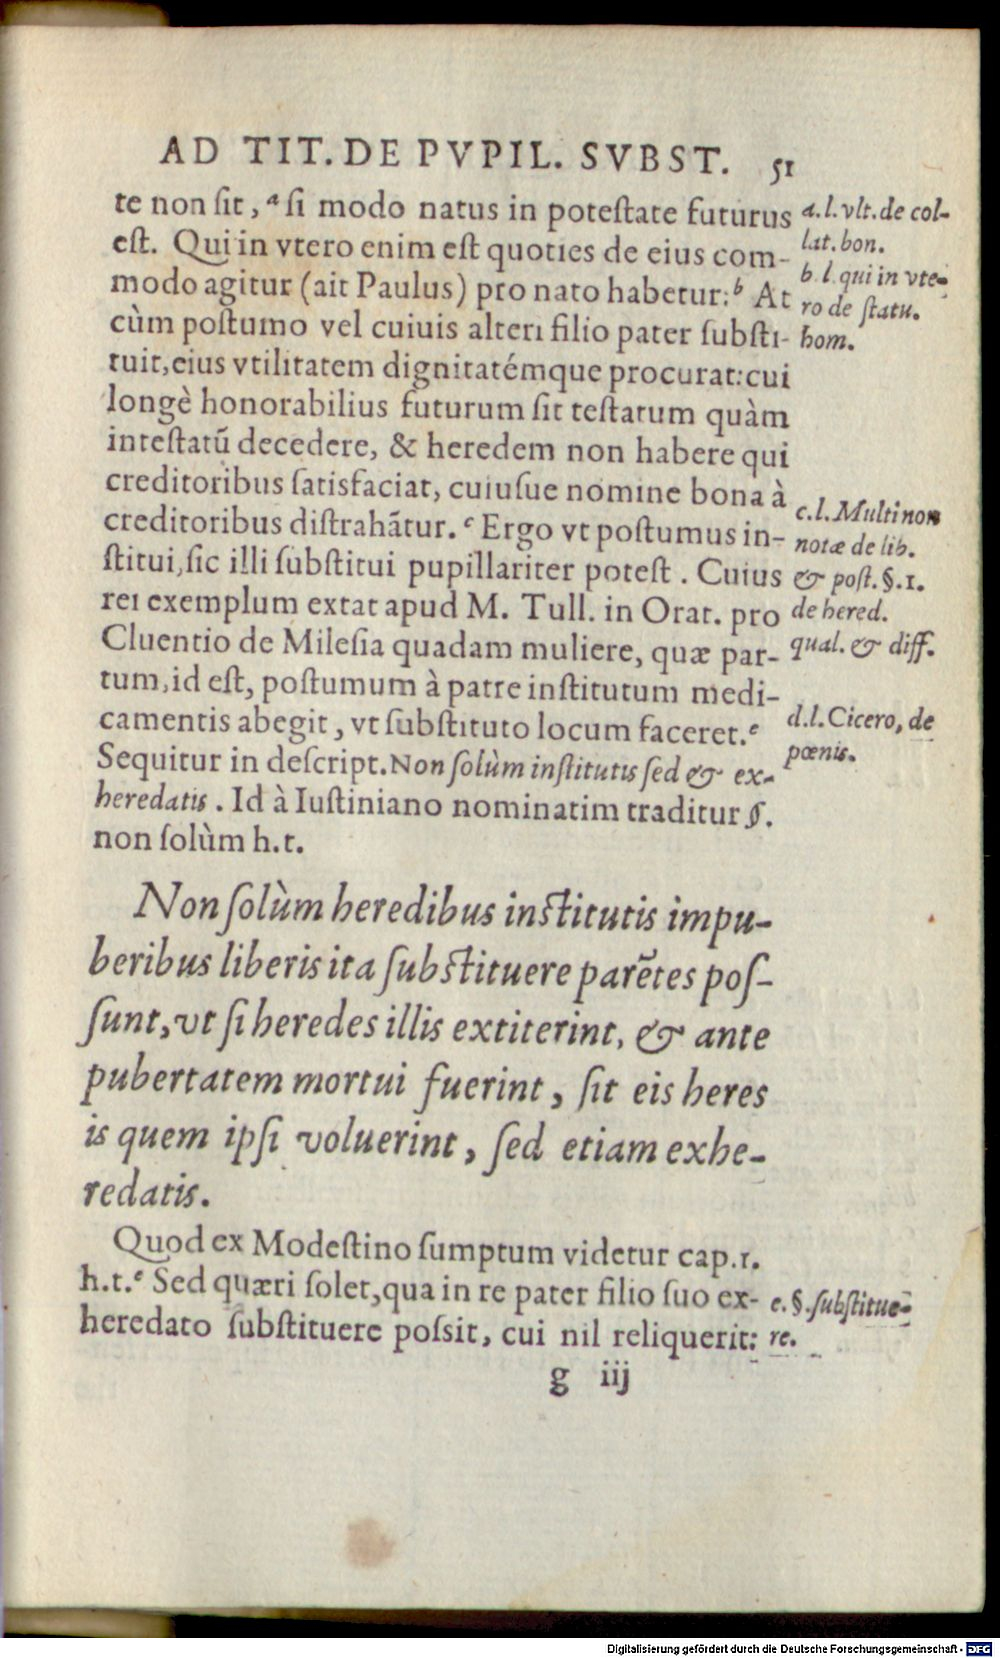 AD TIT. DE PVPIL. SVBST. 51
te non ſit, ᵃ ſi modo natus in poteſtate futurus
eſt. Qui in vtero enim eſt quoties de eius com-
modo agitur (ait Paulus) pro nato habetur: ᵇ At
cùm poſtumo vel cuiuis alteri filio pater ſubſti-
tuit, eius vtilitatem dignitatémque procurat: cui
longè honorabilius futurum ſit teſtatum quàm
inteſtatũ decedere, & heredem non habere qui
creditoribus ſatisfaciat, cuiuſue nomine bona à
creditoribus diſtrahãtur. ᶜ Ergo vt poſtumus in-
ſtitui, ſic illi ſubſtitui pupillariter poteſt. Cuius
rei exemplum extat apud M. Tull. in Orat. pro
Cluentio de Mileſia quadam muliere, quæ par-
tum, id eſt, poſtumum à patre inſtitutum medi-
camentis abegit, vt ſubſtituto locum faceret. ᵉ
Sequitur in deſcript. Non ſolùm inſtitutis ſed & ex-
heredatis. Id à Iuſtiniano nominatim traditur §.
non ſolùm h.t.
Non ſolùm heredibus inſtitutis impu-
beribus liberis ita ſubſtituere parẽtes poſ-
ſunt, vt ſi heredes illis extiterint, & ante
pubertatem mortui fuerint, ſit eis heres
is quem ipſi voluerint, ſed etiam exhe-
redatis.
Quod ex Modeſtino ſumptum videtur cap.1.
h.t. ᵉ Sed quæri ſolet, qua in re pater filio ſuo ex-
heredato ſubſtituere poſsit, cui nil reliquerit:
g iij
a. l. vlt. de col-
lat. bon.
b. l. qui in vte-
ro de ſtatu.
hom.
c. l. Multi non
notæ de lib.
& poſt. §.1.
de hered.
qual. & diff.
d. l. Cicero, de
pœnis.
e. §. ſubſtitue-
re.
Digitalisierung gefördert durch die Deutsche Forschungsgemeinschaft - DFG